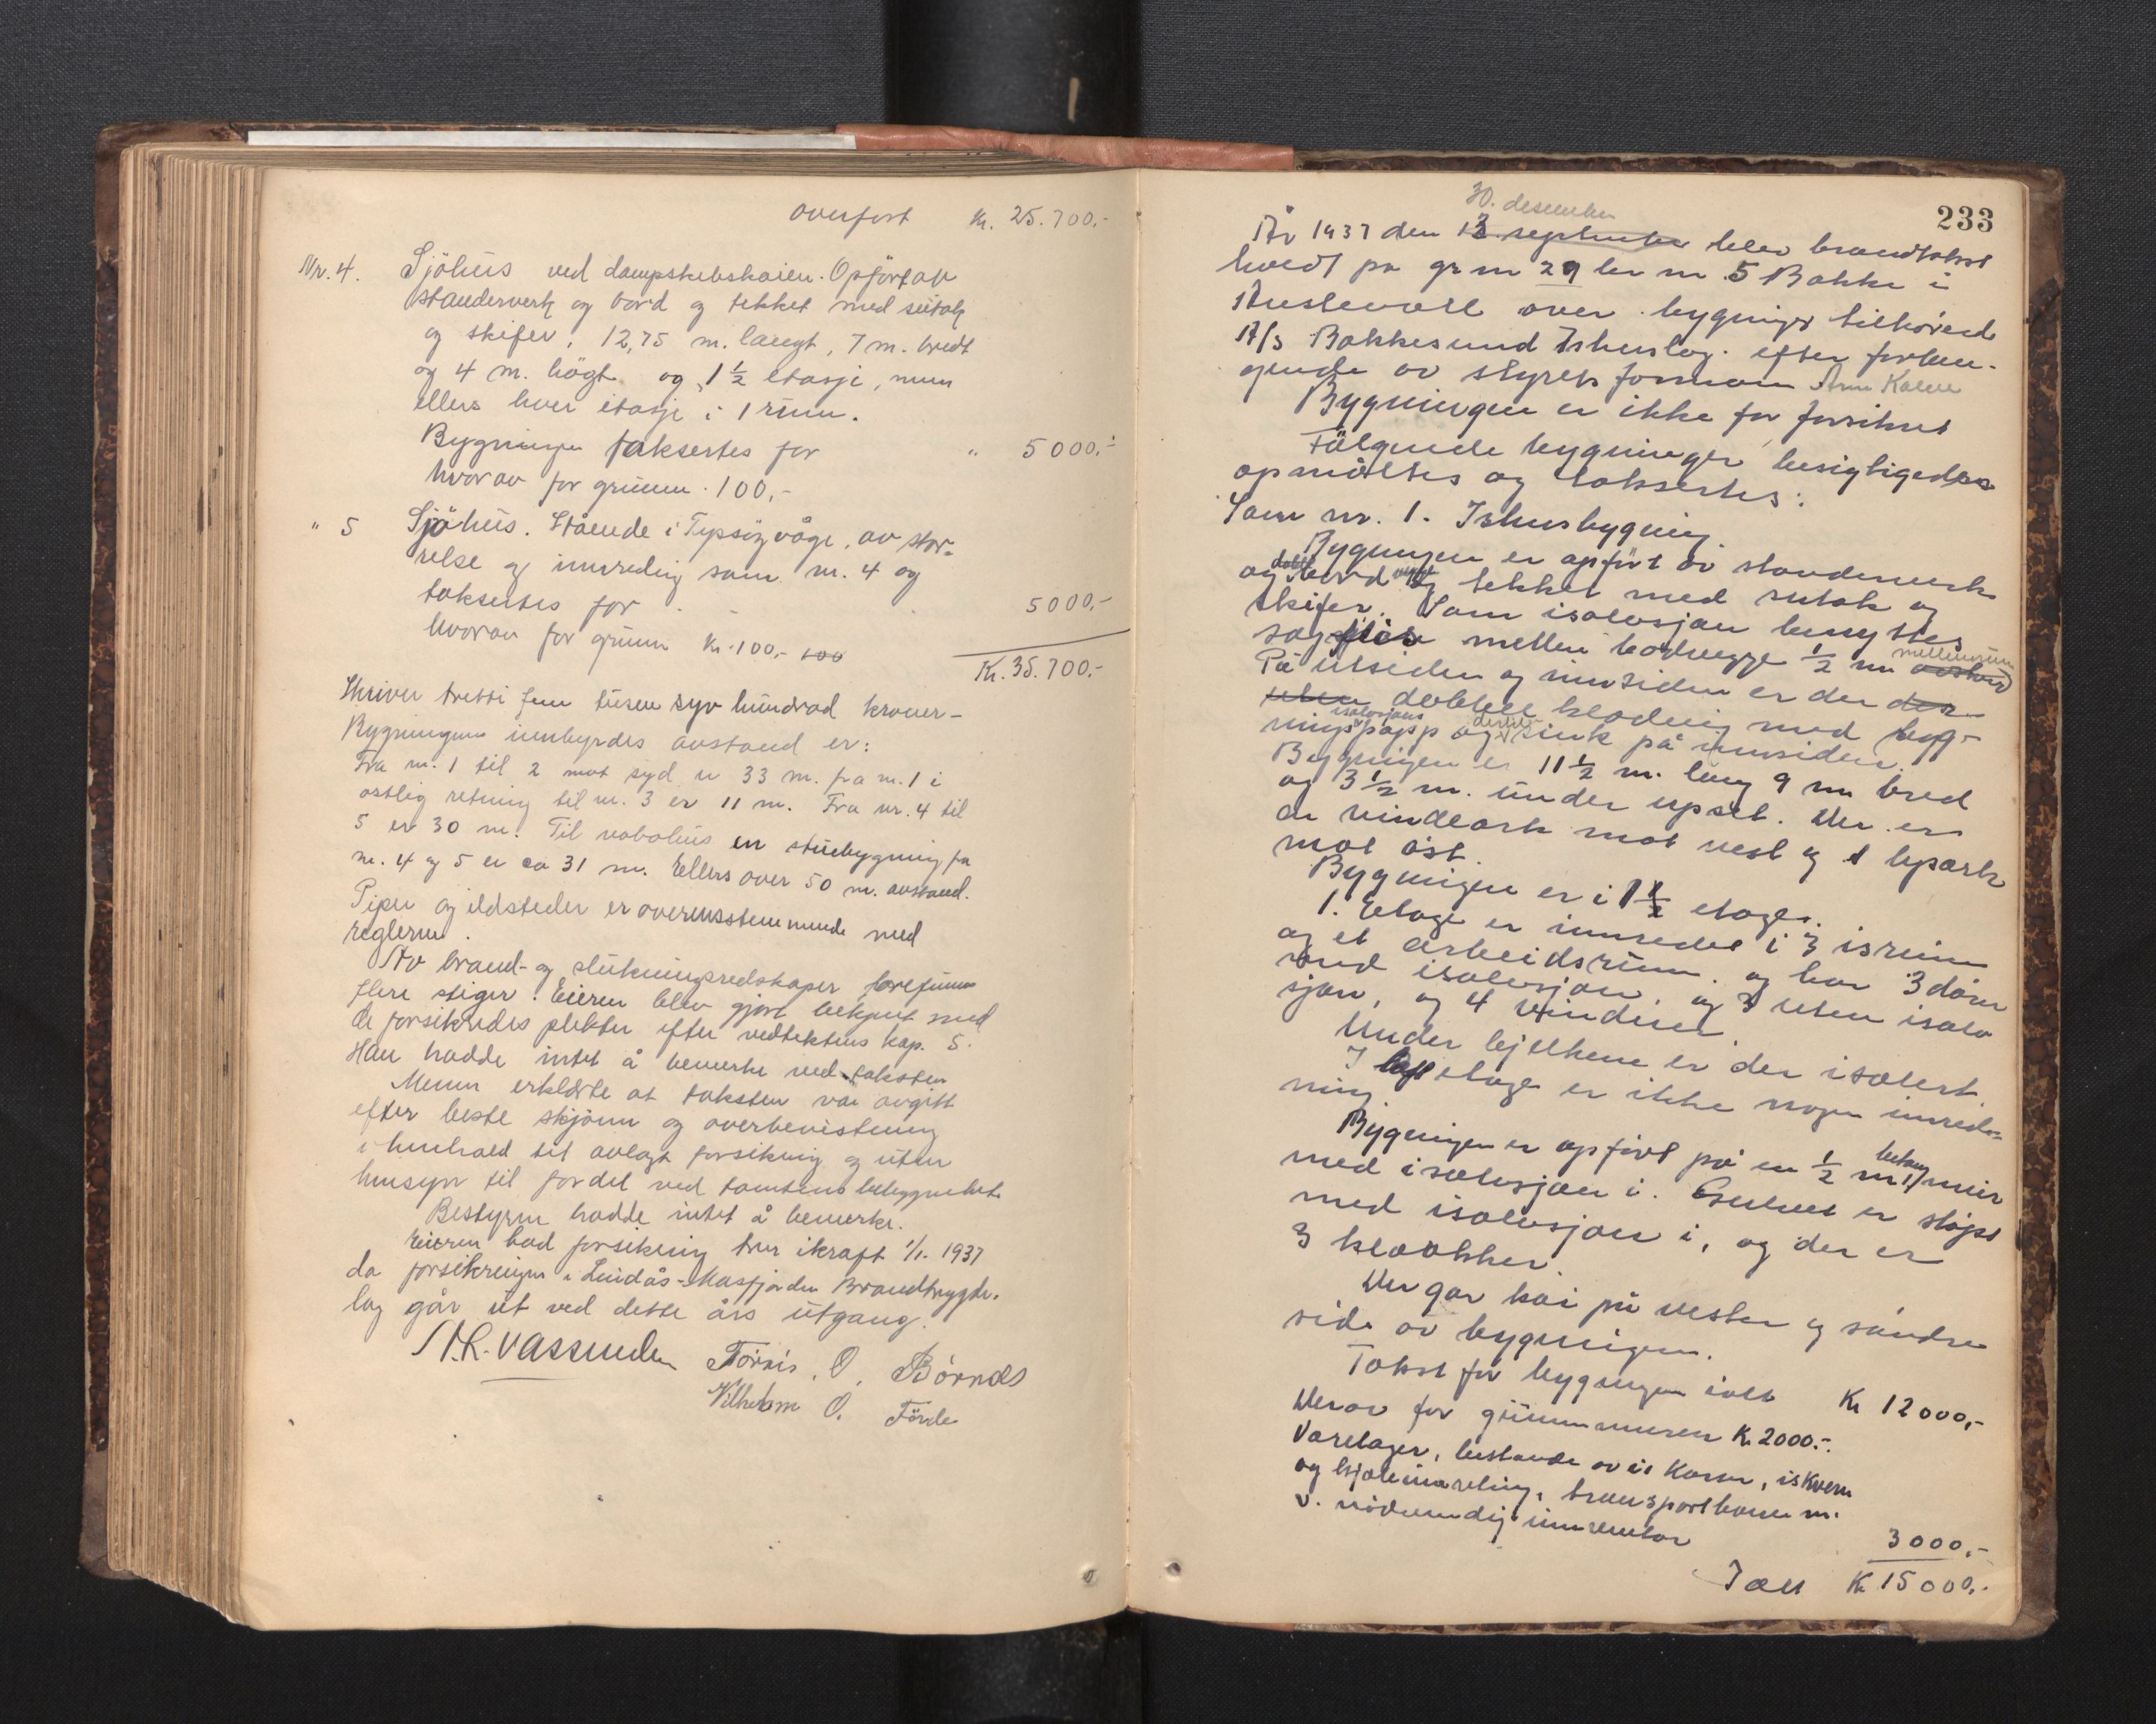 overført Kr. 25.700,-
Nr. 4. Sjöhus ved dampskibskaien. Opfört av
standerverk og bord og tekket med sutak
og skifer, 12,75 m. langt, 7 m. bredt
og 4 m. högt og 1 1/2 etasje, men
ellers hver etasje i 1 rum.
Bygningen taksertes for " 5000,-
hvorav for grunn 100,-
" 5 Sjöhus. Stående i våge, av stör-
relse og innredig som nr. 4 og
taksertes for 5000,-
hvorav for grunn Kr. 100,- 100
Kr. 35.700,-
Skriver tretti fem tusen syv hundrad kroner -
Bygningens innbyrdes avstand er:
Fra nr. 1 til 2 mot syd er 33 m. fra nr. 1 i
östlig retning til nr. 3 er 11 m. Fra nr. 4 til
5 er 30 m. Til nabohus en stuebygning fra
nr. 4 og 5 er ca 31 m. Ellers over 50 m. avstand.
Piper og ildsteder er overensstemmende med
reglerne.
Av brand- og slukningsredskaper forefinnes
flere stiger. Eieren blev gjort bekjent med
de forsikredes plikter efter vedtektens kap. 5.
Han hadde intet å bemerke ved taksten
Menn erklærte at taksten var avgitt
efter beste skjönn og overbevisning
i henhold til avlagt forsikring og uten
hensyn til fordel ved tomtens beliggenhet.
Bestyrer hadde intet å bemerke.
Eieren bad forsikring trer ikraft 1/1. 1937
da forsikringen i Lindås-Masfjorden Brandtrygde-
lag går ut ved dette års utgang.
Vassenden O. Börnes
Vilhelm O. Förde
233
30. desember
År 1937 den 13 september blev brandtakst
holdt på gr nr 29 br nr 5 Bakke i
Austevoll over bygninger tilhörende
A/S Bakkesund Ishuslag. efter forlan-
gende av styrets formann Arne Kalve
Bygningen er ikke för forsikret
Fölgende bygninger besigtigedes
opmåltes og taksertes:
Som nr. 1. Ishusbygning.
Bygningen er opfört av standerverk
og dobbl bord og tekket med sutak og
skifer. Som isolasjon benyttes
sagflis mellem bordvegge 1/2 m mellemrum
På utsiden og innsiden er der des-
uten dobbel kledning med byg-
nings isolasjons papp og sink på innsiden.
Bygningen er 11 1/2 m. lang 9 m bred
og 3 1/2 m. under upset. Der er
en vindeark mot vest og 1 ark
mot öst.
Bygningen er i 1 1/2 etage.
1. Etage er innredet i 3 isrum
og et arbeidsrum og har 3 dörer
med isolasjon, og 3 uten isola
sjon, og 4 vinduer.
Under bjelkene er der isolert.
I loft etage er ikke nogen innred-
ning.
Bygningen er opfört på en 1/2 m betong mur
med isolasjon i. Gulvet er stöpt
med isolasjon i, og der er
3 .
Der gar kai på vestre og söndre
side av bygningen.
Takst for bygningen ialt Kr 12000,-
Derav for grunnmuren Kr. 2000.-
Varelager, bestande av is Kasser, iskvern
og , transportbaner m.
v. nödvendig inventar 3000.-
Ialt Kr 15000.-